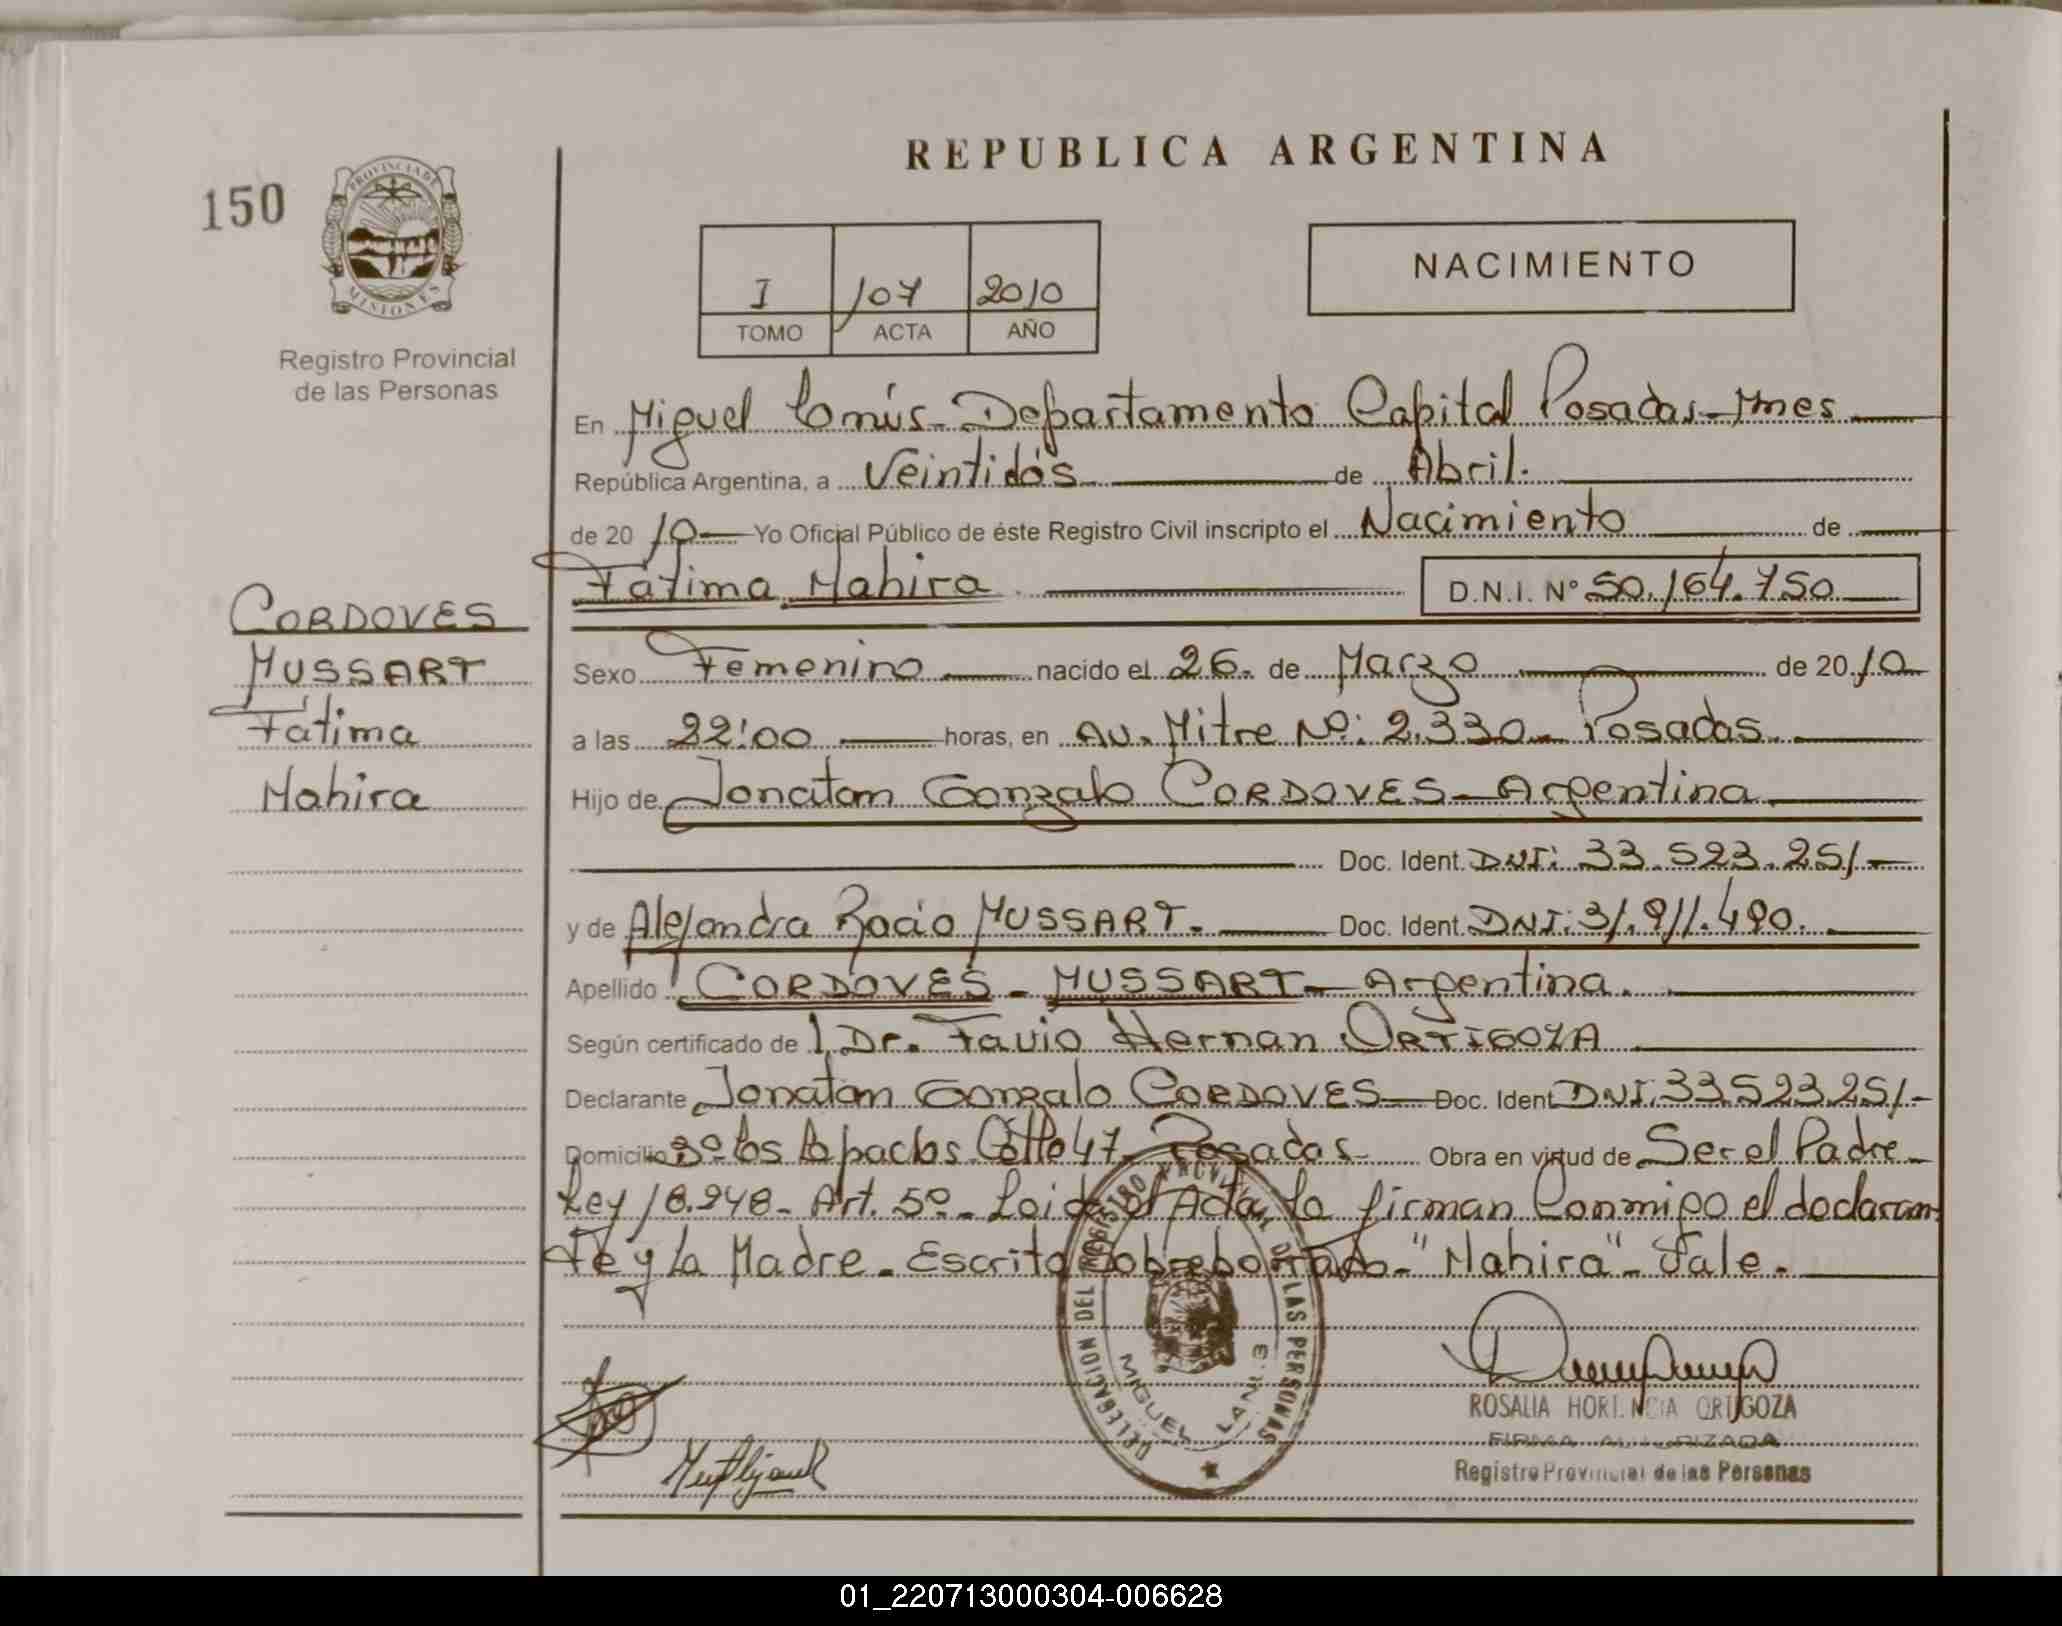 REPUBLICA ARGENTINA
150
PROVINCIA DE
MISIONES
Registro Provincial
de las Personas
I 107 2010
TOMO ACTA AÑO
NACIMIENTO
En Miguel Lanús - Departamento Capital Posadas - Mnes
República Argentina, a Veintidós de Abril.
de 2010 Yo Oficial Público de éste Registro Civil inscripto el Nacimiento de
Fátima Nahira D.N.I. Nº 50.164.750
CORDOVES
MUSSART
Fátima
Nahira
Sexo Femenino nacido el 26. de Marzo de 2010
a las 22:00 horas, en Av. Mitre Nº: 2.330 - Posadas.
Hijo de Jonatan Gonzalo CORDOVES - Argentina
Doc. Ident. DNI: 33.523.251 -
y de Alejandra Rocio MUSSART. Doc. Ident. DNI: 31.911.490.
Apellido CORDOVES - MUSSART - Argentina.
Según certificado de Dr. Favio Hernan ORTIGOZA
Declarante Jonatan Gonzalo CORDOVES Doc. Ident DNI: 33.523.251 -
Domicilio Bº los Lapachos Calle 47 - Posadas - Obra en virtud de Ser el Padre -
Ley 18.248 - Art. 5º - Leida el Acta la firman Conmigo el declaran-
te y la Madre. Escrito Sobreborrado - "Nahira" - Vale.
DELEGACION DEL REGISTRO PROVINCIAL DE LAS PERSONAS
MIGUEL LANUS
ROSALIA HORTENCIA ORTIGOZA
FIRMA AUTORIZADA
Registro Provincial de las Personas
01_220713000304-006628